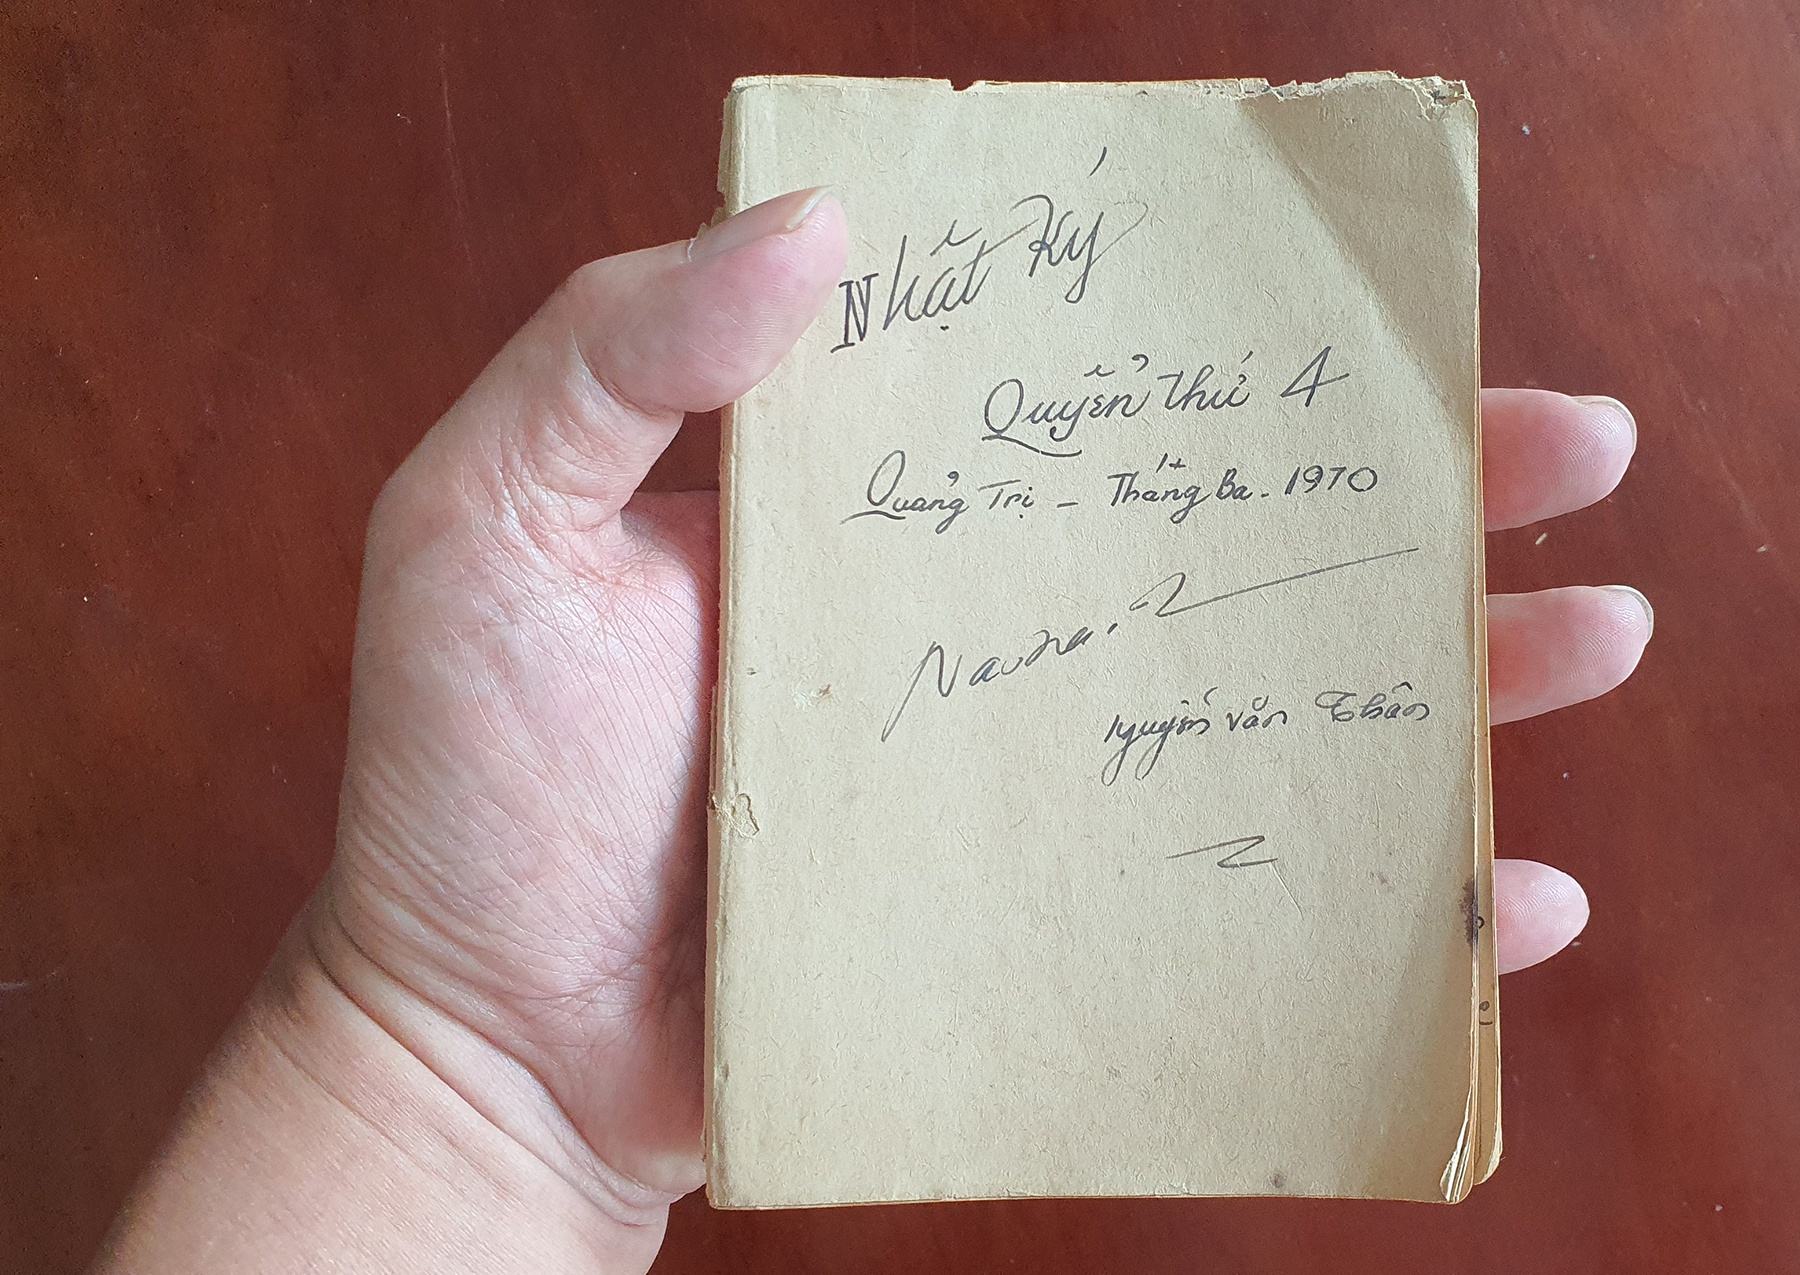 Nhật Ký
Quyển thứ 4
Quảng Trị - Tháng Ba. 1970
Nguyễn Văn Thân